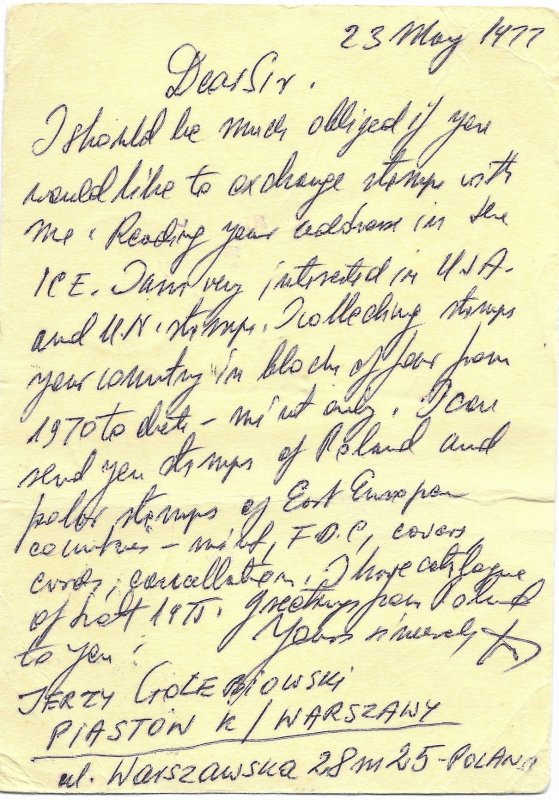 23 May 1977
Dear Sir.
I should be much obliged if you
would like to exchange stamps with
me. Reading your address in the
ICE. I am very interested in USA.
and U.N. stamps. I collecting stamps
your country in block of four from
1970 to date - mint only. I can
send you stamps of Poland and
polar stamps of East European
countries - mint, F.D.C, covers,
cards, cancellation. I have catalogue
of 1975. Greetings from Poland
to you! Yours sincerely
JERZY GOŁĘBIOWSKI
PIASTÓW K/WARSZAWY
ul. WARSZAWSKA 28 m 25 - POLAND